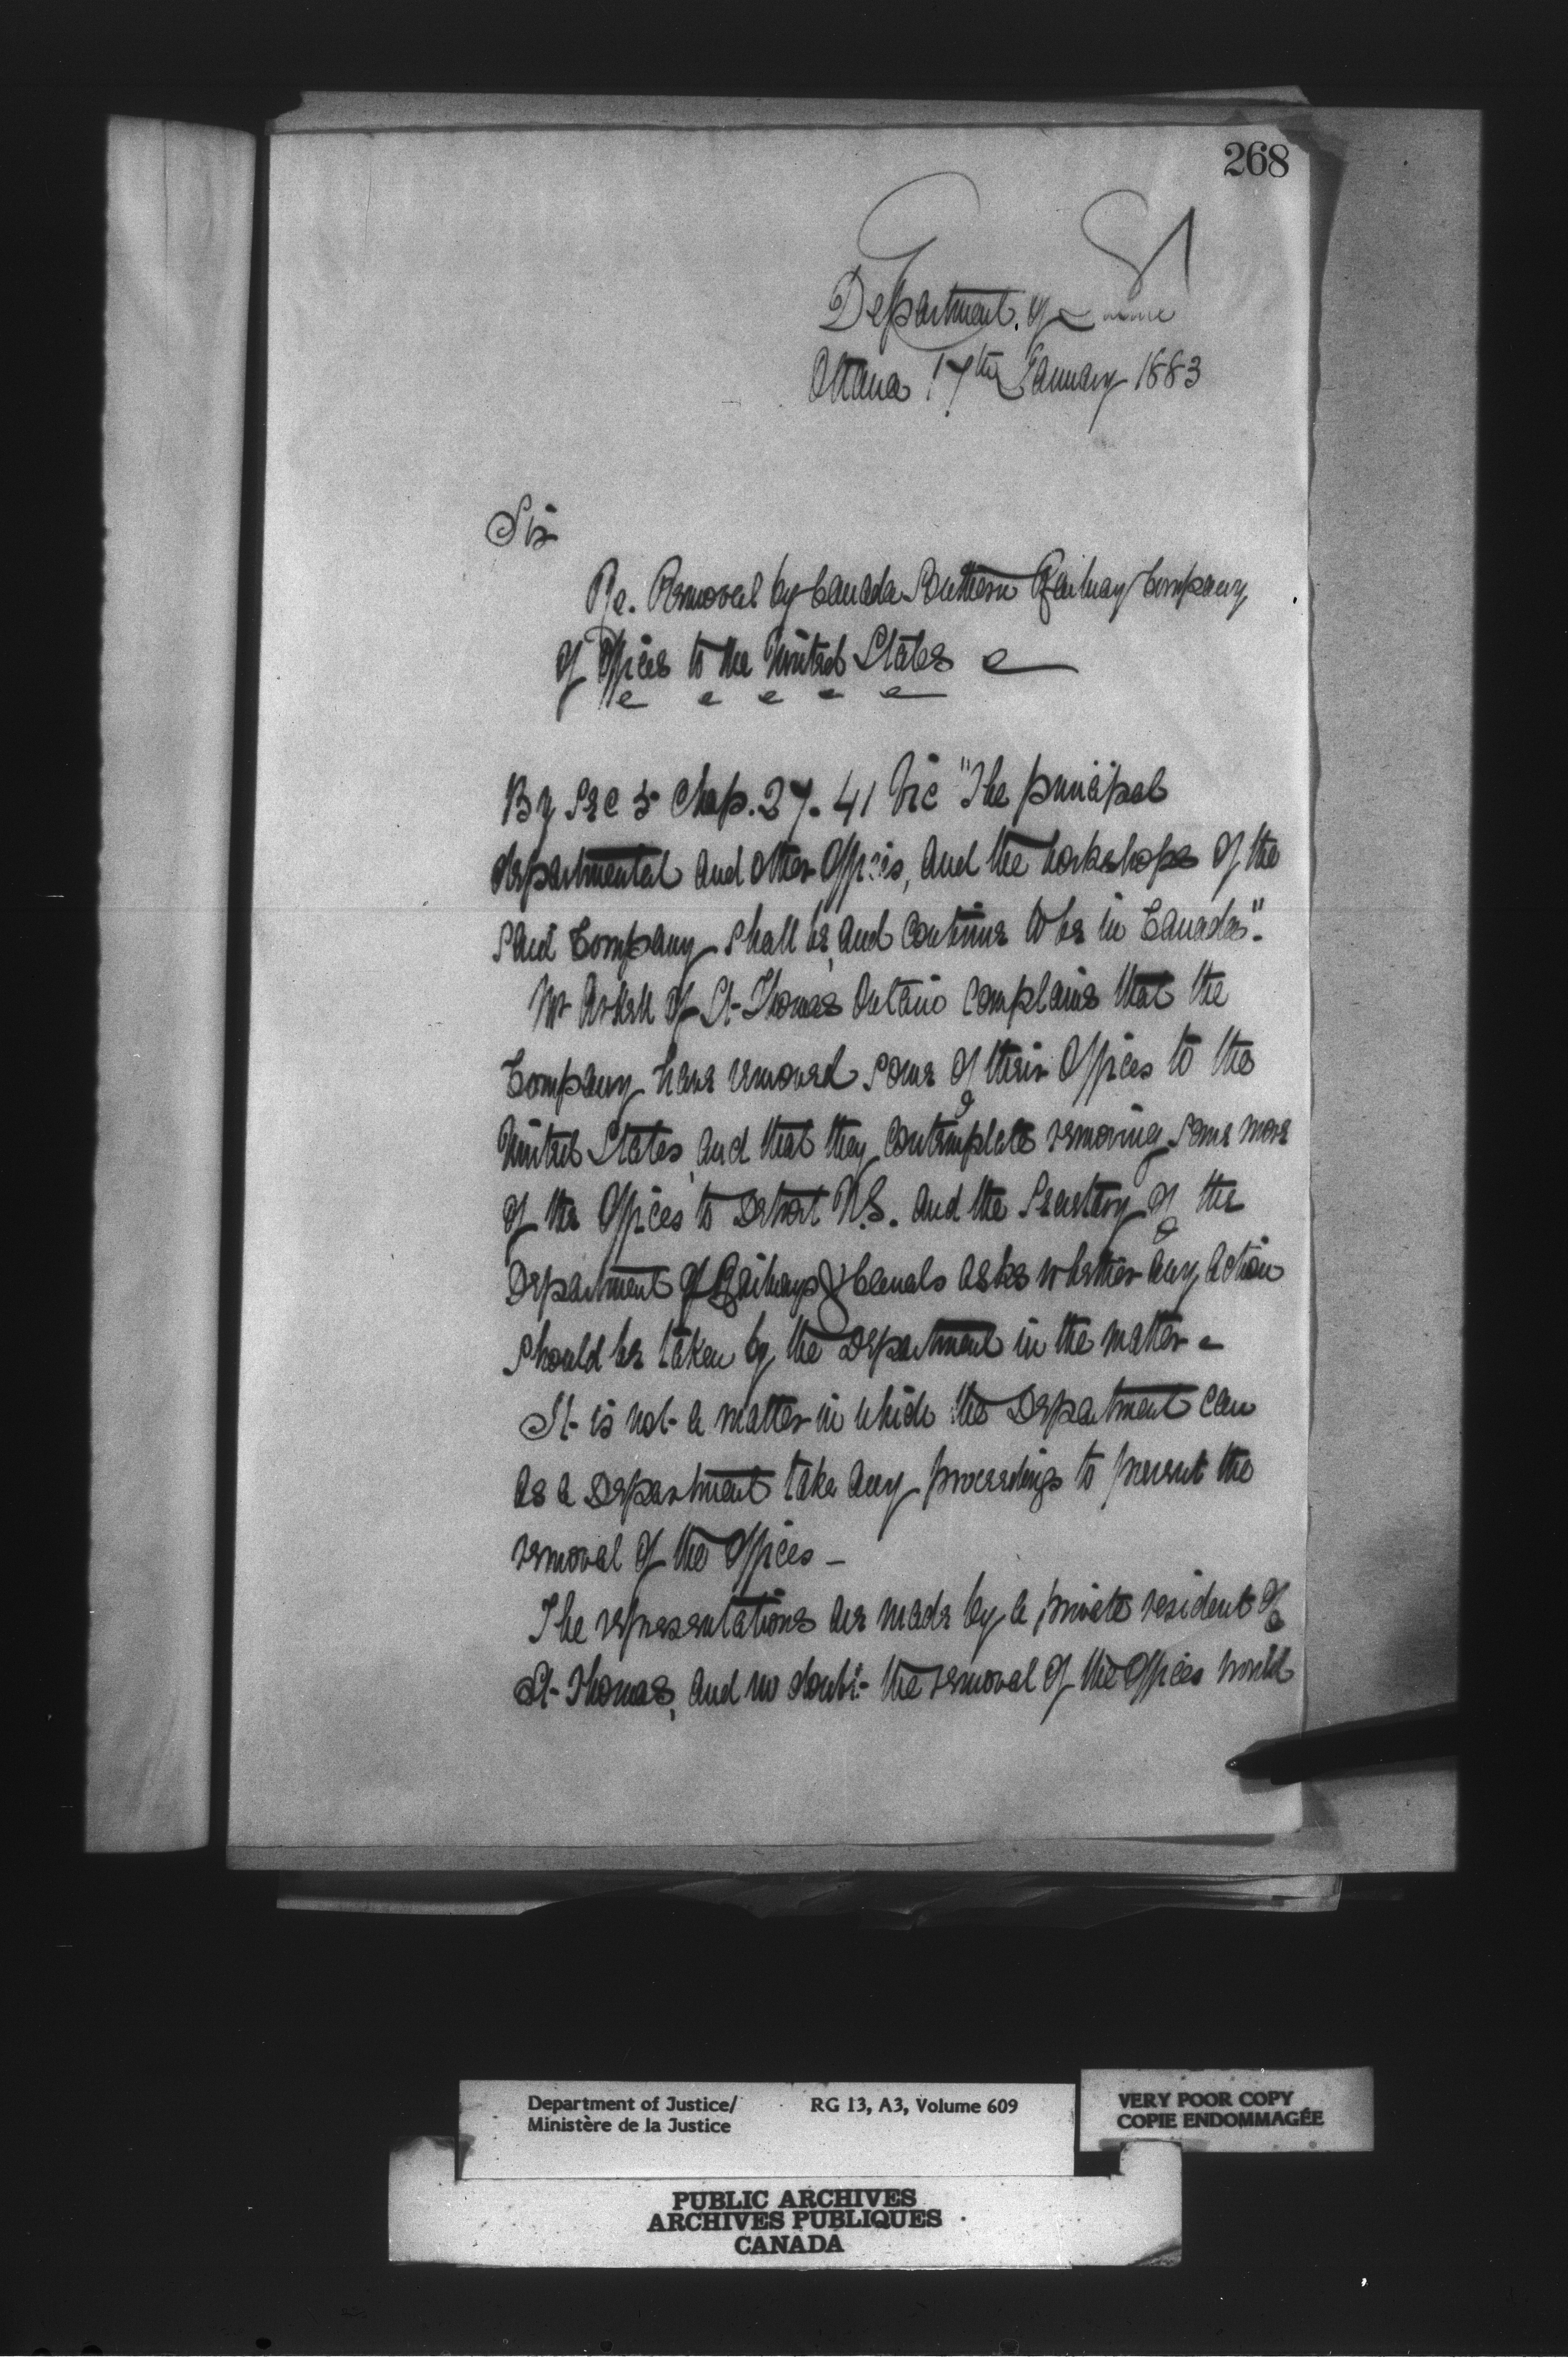 268
Department of Justice
Ottawa 17th January 1883
Sir
Re. Removal by Canada Southern Railway Company
of Offices to the United States
By Sec 5 Chap. 27. 41 Vic "The principal
departmental and other Offices, and the workshops of the
said Company shall be, and continue to be in Canada".
Mr of St Thomas Ontario complains that the
Company have removed some of their Offices to the
United States, and that they contemplate removing some more
of the Offices to Detroit U.S. and the Secretary of the
Department of Railways & Canals asks whether any action
should be taken by the Department in the matter -
It is not a matter in which the Department can
as a Department take any proceedings to prevent the
removal of the Offices -
The representations are made by a private resident of
St Thomas, and no doubt the removal of the Offices would
Department of Justice/ RG 13, A3, Volume 609
Ministère de la Justice
VERY POOR COPY
COPIE ENDOMMAGÉE
PUBLIC ARCHIVES
ARCHIVES PUBLIQUES
CANADA